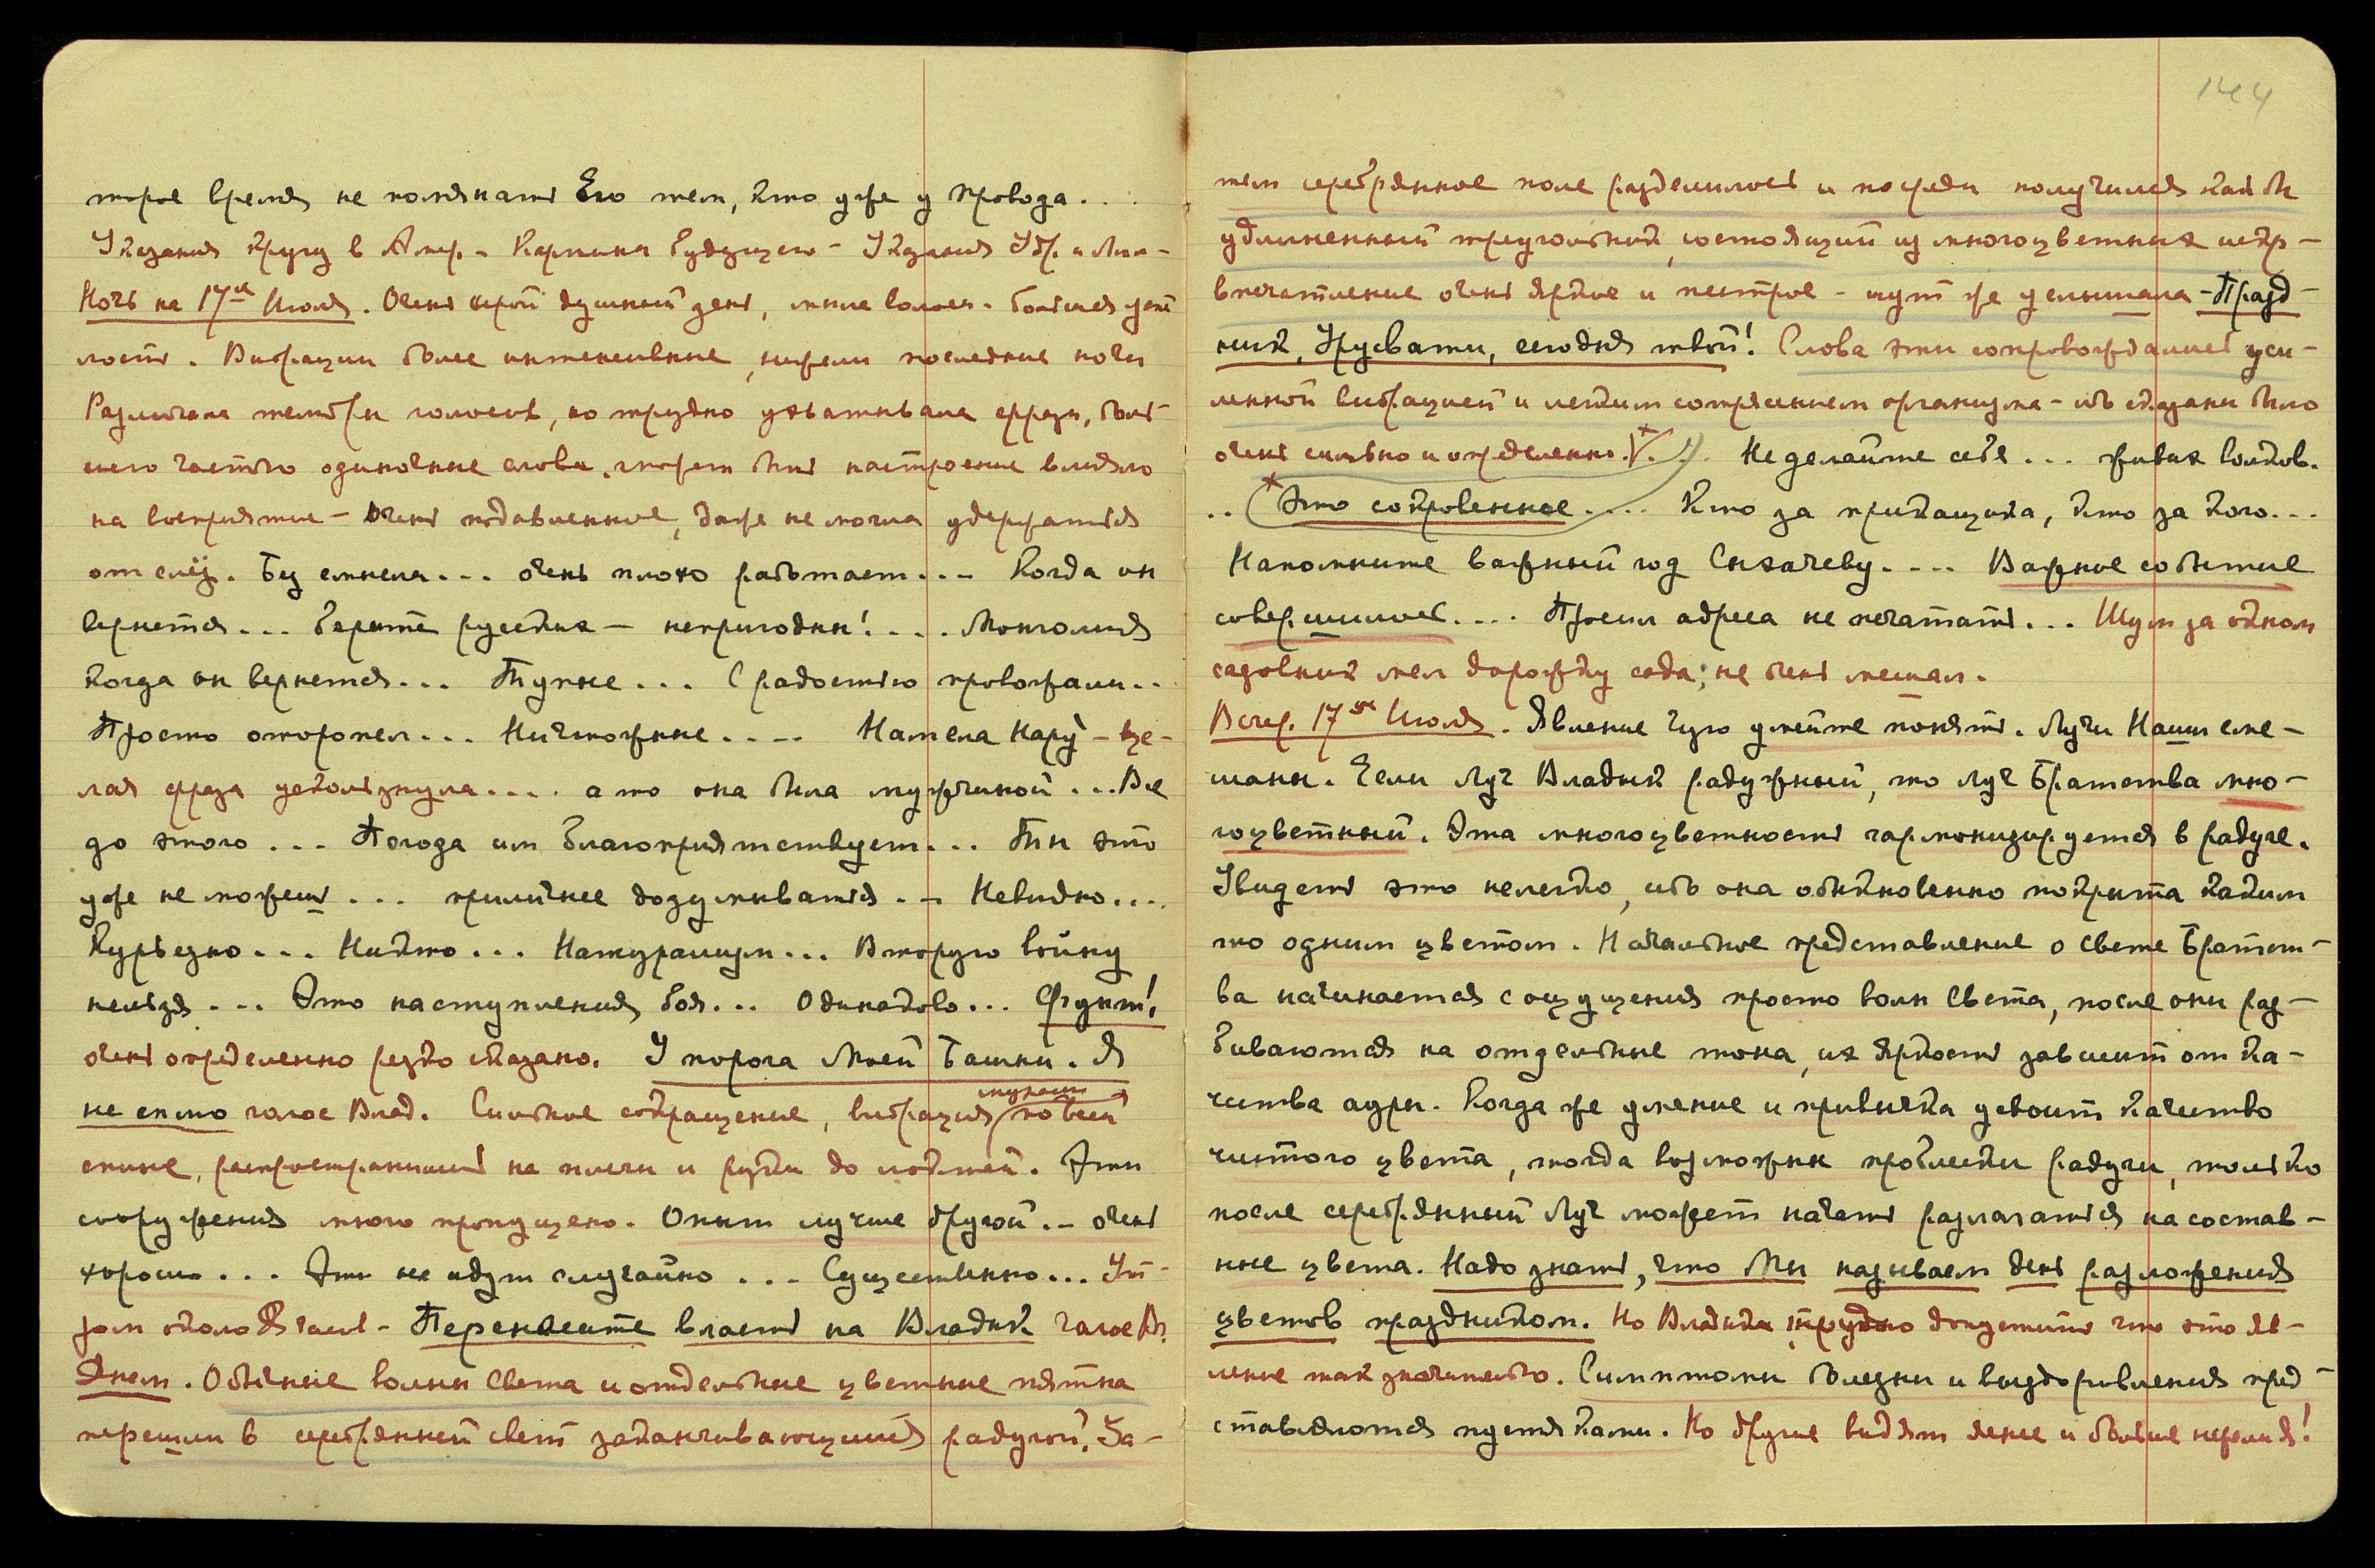 144
торое время не помянать Его тем, кто уже у провода. . .
Указания кругу в Амер. - Картина будущего - Указания
Ночь на 17ое Июля. Очень серый душный день, мыла волосы. большая уст-
лость. Вибрации более интенсивные, нежели последние ночи
Различала тембры голосов, но трудно улатывала фразы, боль-
шего частью одиночные слова. может быть настроение влияло
на восприятие - очень подавленное, даже не могла удержаться
от слёз. Без смысла... очень плохо работает... Когда он
вернется... Берите русских - непригодны!.... Монголия
когда он вернется... Тупые... С радостью провожали..
Просто оторопел... Ничтожные.... Карў - це-
лая фраза ускользнула.... а то она была мужчиной... Все
до этого... Погода им благоприятствует... Ты это
уже не можешь... приличнее додумываться... Невидно....
Курьезно... Никто... Натурализм... Вторую войну
нельзя... Это наступления боя... Одинаково... Фунт!
очень определенно резко сказано. У порога Моей Башни. Я
не сплю голос Влад. Сильное сокращение, вибрация по всей
спине, распространилась на плечи и руки до локтей. Эти
сооружения много пропущено. Опыт лучше другой.. - очень
хорошо... Эти не идут случайно... Существенно... Ут-
ром около 5 часов - Перенесите власть на Владык голос Вл.
Днем. Обычные волны света и отдельные цветные пятна
перешли в серебрянный свет заканчивающийся радугой. За-
тем серебрянное поле разделилось и посреди получился как бы
удлиненный треугольник, состоящий из многоцветных искр -
впечатление очень яркое и пестрое - тут же услышала - Празд-
ник, Урусвати, сегодня твой! Слова эти сопровождались уси-
ленной вибрацией и легким сотрясением организма - ибо сказаны было
очень сильно и определенно. Не делайте себе... живых волков.
.. (Это сокровенное.... Кто за приказчика, кто за кого...
Напомните важный год Сыхачеву.... Важное событие
совершилось.... Просил адреса не печатать... Шум за окном
садовник мел дорожку сада; не очень мешал.
Вечер. 17ое Июля. Явление Чуго умейте понять. Лучи Наши сме-
шаны. Если Луч Владык радужный, то луч Братства мно-
гоцветный. Эта многоцветность гармонизируется в радуге.
Увидеть это нелегко, ибо она обыкновенно покрыта каким
то одним цветом. Начальное представление о Свете Братст-
ва начинается с ощущения просто волн Света, после они раз-
биваются на отдельные тона, их яркость зависит от ка-
чества ауры. Когда же умение и привычка усвоит качество
чистого цвета, тогда возможны проблески радуги, только
после серебрянный Луч может начать разлагаться на состав-
ные цвета. Надо знать, что Мы называем день разложения
цветов праздником. Но Владыка трудно допустить что это яв-
ление так значительно. Симптомы болезни и выздоровления пред-
ставляются пустяками. Но другие видят менее и больше нежели я!